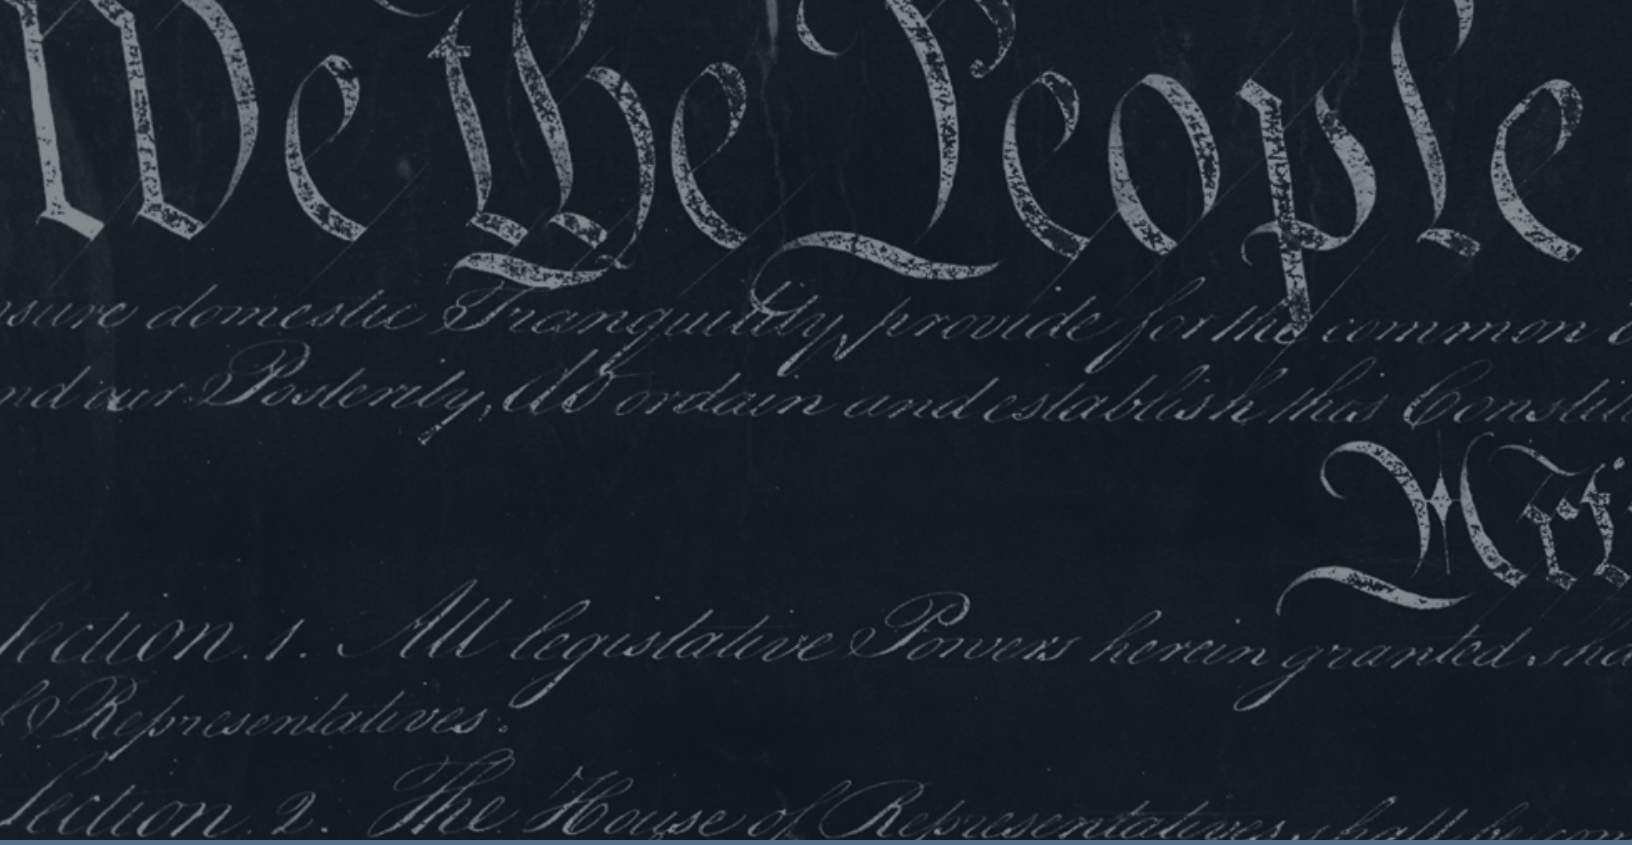 We the People
nsure domestic Tranquility, provide for the common
nd our Posterity, do ordain and establish this Constit
Arti
Section. 1. All legislative Powers herein granted sha
& Representatives.
Section. 2. The House of Representatives shall be com